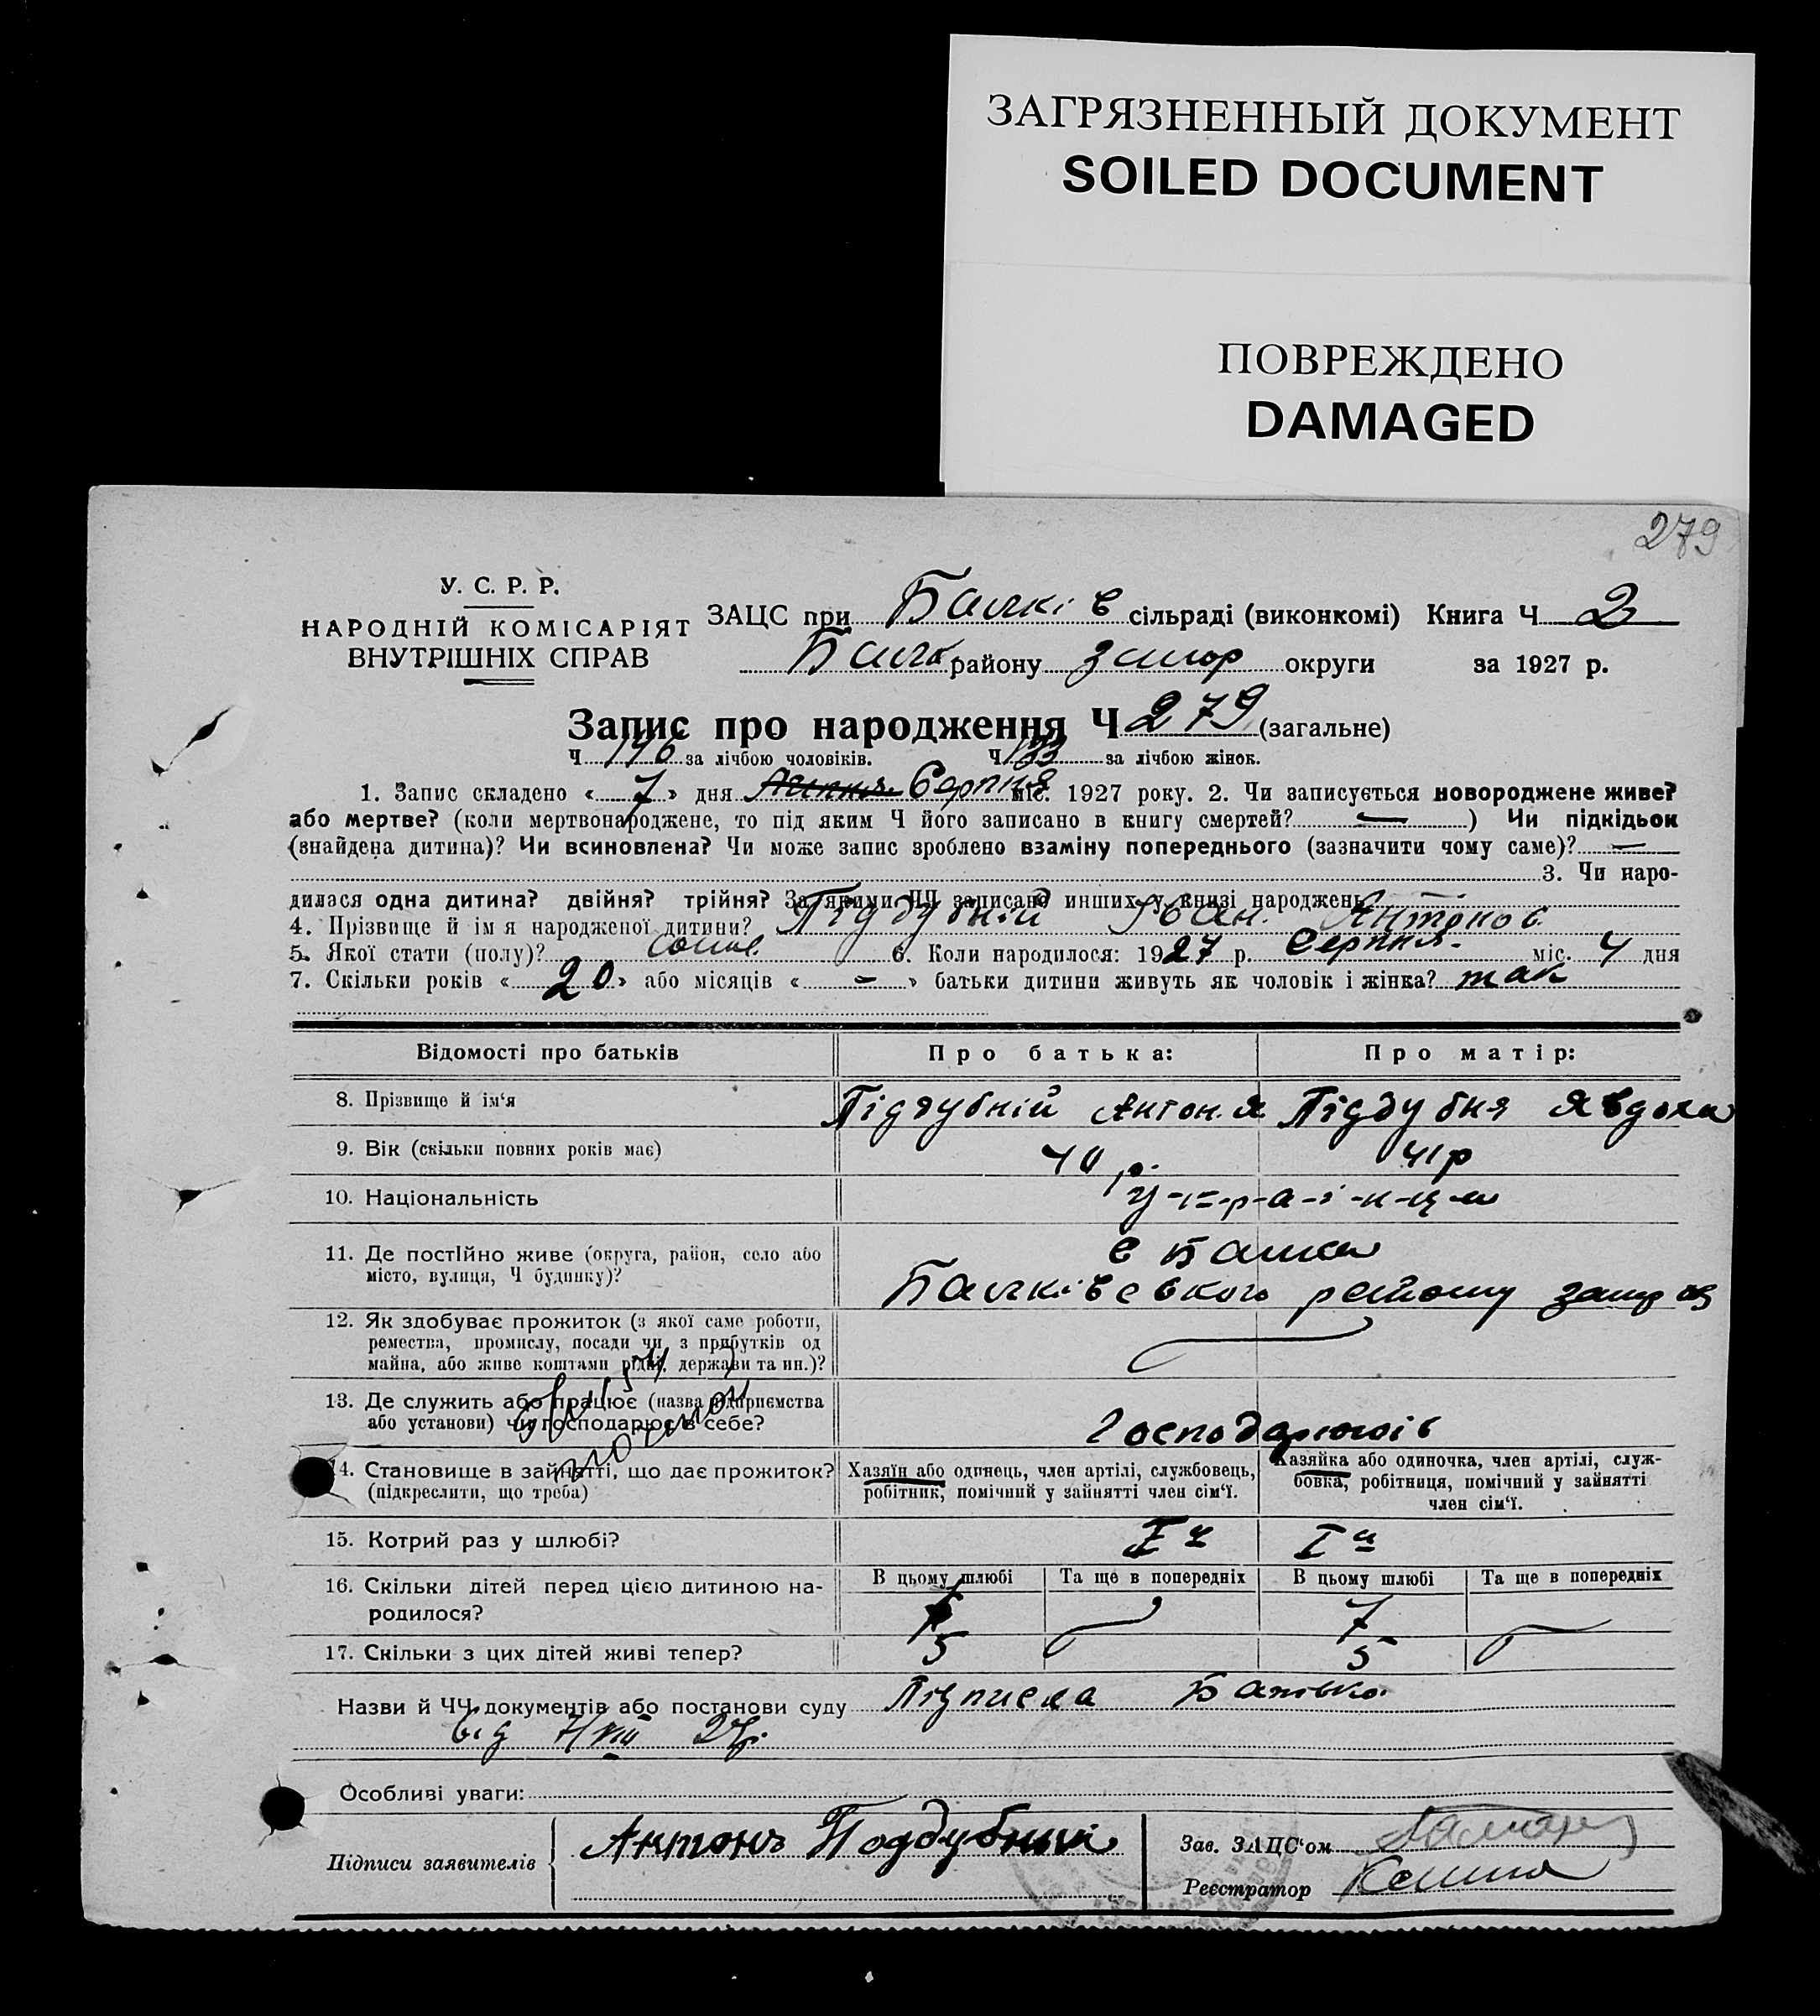 ЗАГРЯЗНЕННЫЙ ДОКУМЕНТ
SOILED DOCUMENT
ПОВРЕЖДЕНО
DAMAGED
279
У. С. Р. Р.
НАРОДНІЙ КОМІСАРІЯТ
ВНУТРІШНІХ СПРАВ
ЗАЦС при Балків сільраді (виконкомі) Книга Ч 2
району запор округи за 1927 р.
Запис про народження Ч 279 (загальне)
Ч 146 за лічбою чоловіків. Ч 133 за лічбою жінок.
1. Запис складено « 7 » дня Серпня міс. 1927 року. 2. Чи записується новороджене живе?
або мертве? (коли мертвонароджене, то під яким Ч його записано в книгу смертей? — ) Чи підкідьок
(знайдена дитина)? Чи всиновлена? Чи може запис зроблено взаміну попереднього (зазначити чому саме)? —
3. Чи наро-
дилася одна дитина? двійня? трійня? За якими ЧЧ записано инших у книзі народжень
4. Прізвище й ім я народженої дитини? Піддубній Іван Антонов
5. Якої стати (полу)? 6. Коли народилося: 1927 р. Серпня міс. 4 дня
7. Скільки років « 20 » або місяців « - » батьки дитини живуть як чоловік і жінка? так
Відомості про батьків Про батька: Про матір:
8. Прізвище й ім‘я Піддубній Антон Піддубня Явдоха
9. Вік (скільки повних років має) 40 р. 41 р
10. Національність у-к-р-а-ї-н-ц-и
11. Де постІйно живе (округа, район, село або
місто, вулиця, Ч будинку)?
в Балках
Балківського району
12. Як здобуває прожиток (з якої саме роботи,
ремества, промислу, посади чи з прибутків од
майна, або живе коштами рідні, держави та ин.)?
13. Де служить або працює (назва підприємства
або установи) чи господарює в себе?
14. Становище в зайнятті, що дає прожиток?
(підкреслити, що треба)
Хазяїн або одинець, член артілі, службовець,
робітник, помічний у зайнятті член сім‘ї.
Хазяйка або одиночка, член артілі, служ-
бовка, робітниця, помічний у зайнятті
член сім‘ї.
15. Котрий раз у шлюбі? І й І й
16. Скільки дітей перед цією дитиною на-
родилося?
В цьому шлюбі Та ще в попередніх В цьому шлюбі Та ще в попередніх
7
17. Скільки з цих дітей живі тепер? 5 5
Назви й ЧЧ документів або постанови суду Підписка Батька
від 7/VIII 27р.
Особливі уваги:
Підписи заявителів Антонъ Поддубный
Зав. ЗАЦС‘ом
Реєстратор